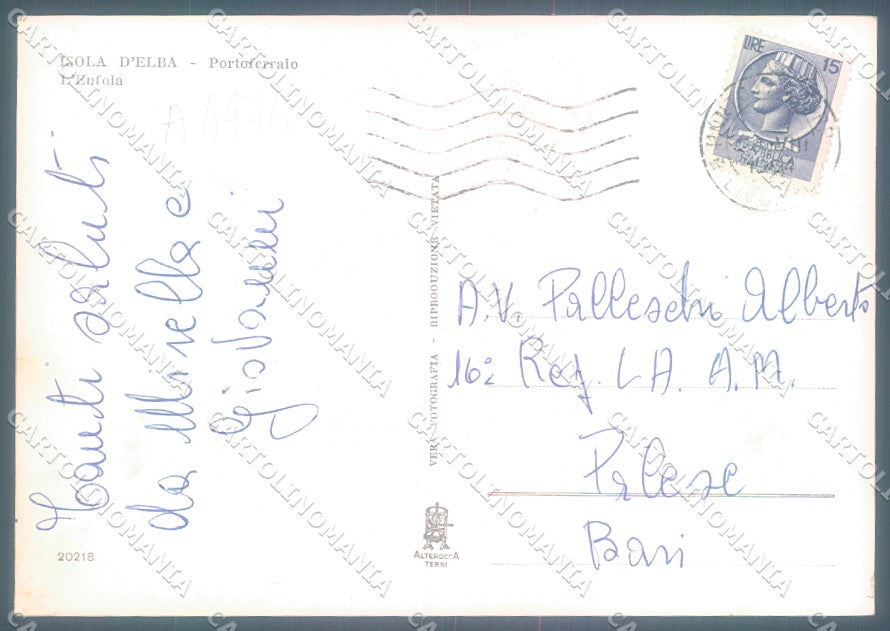 ISOLA D'ELBA - Portoferraio
L'Enfola
Tanti saluti
da Mirella e
Giovanni
VERA FOTOGRAFIA - RIPRODUZIONE VIETATA
LIRE 15
A.V. Palleschi Alberto
16° Reg. LA. A.M.
Palese
Bari
20218
ALTEROCCA
TERNI
CARTOLINOMANIA